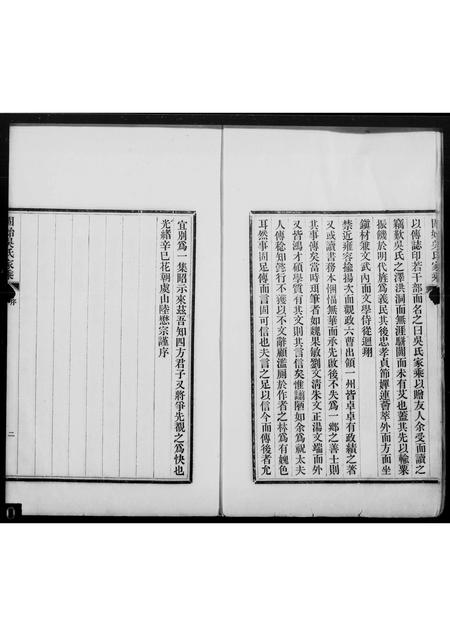 以傳誌印若干部而名之曰吳氏家乘以貽友人余受而讀之
竊歎吳氏之澤洪洞而無涯駢闐而未有艾也蓋其先以輸粟
振饑於明代旌為義民其後忠孝貞節嬋連薈萃外而方面坐
鎮材兼文武內而文學侍從迴翔
禁近雍容揄揚次而觀政六曹出領一州皆卓卓有政績之著
又或讀書務本悃愊無華而承先啟後不失為一鄉之善士則
其事傳矣當時珥筆者如魏果敏劉文清朱文正湯文端而外
又皆鴻才碩學質有其文則其言信矣惟譾陋如余為祝太夫
人傳稔知懿行不獲以不文辭顧濫廁於作者之林為有媿色
耳然事固足傳而言固可信也夫言之足以信今而傳後者允
宜別為一集昭示來茲吾知四方君子又將爭先覩之為快也
光緒辛巳花朝虞山陸懋宗謹序
固始吳氏家乘
序
二